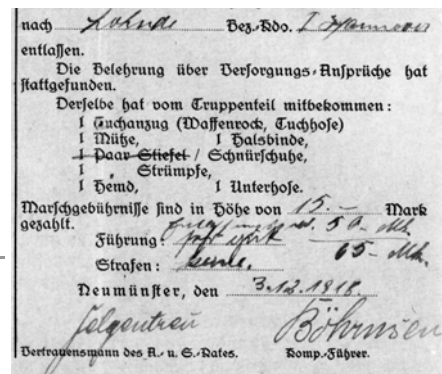 nach Lohnde Bez.-Kdo. I Hannover
entlassen.
Die Belehrung über Versorgungs-Ansprüche hat
stattgefunden.
Derselbe hat vom Truppenteil mitbekommen:
1 Tuchanzug (Waffenrock, Tuchhose)
1 Mütze, 1 Halsbinde,
1 Paar Stiefel / Schnürschuhe,
1 „ Strümpfe,
1 Hemd, 1 Unterhose.
Marschgebührnisse sind in Höhe von 15.- Mark
gezahlt. 50 Mk.
Führung: 65.- Mk.
Strafen: keine.
Neumünster, den 3.12.1918.
Böhrnsen
Vertrauensmann des A.- u. S.-Rates. Komp.-Führer.